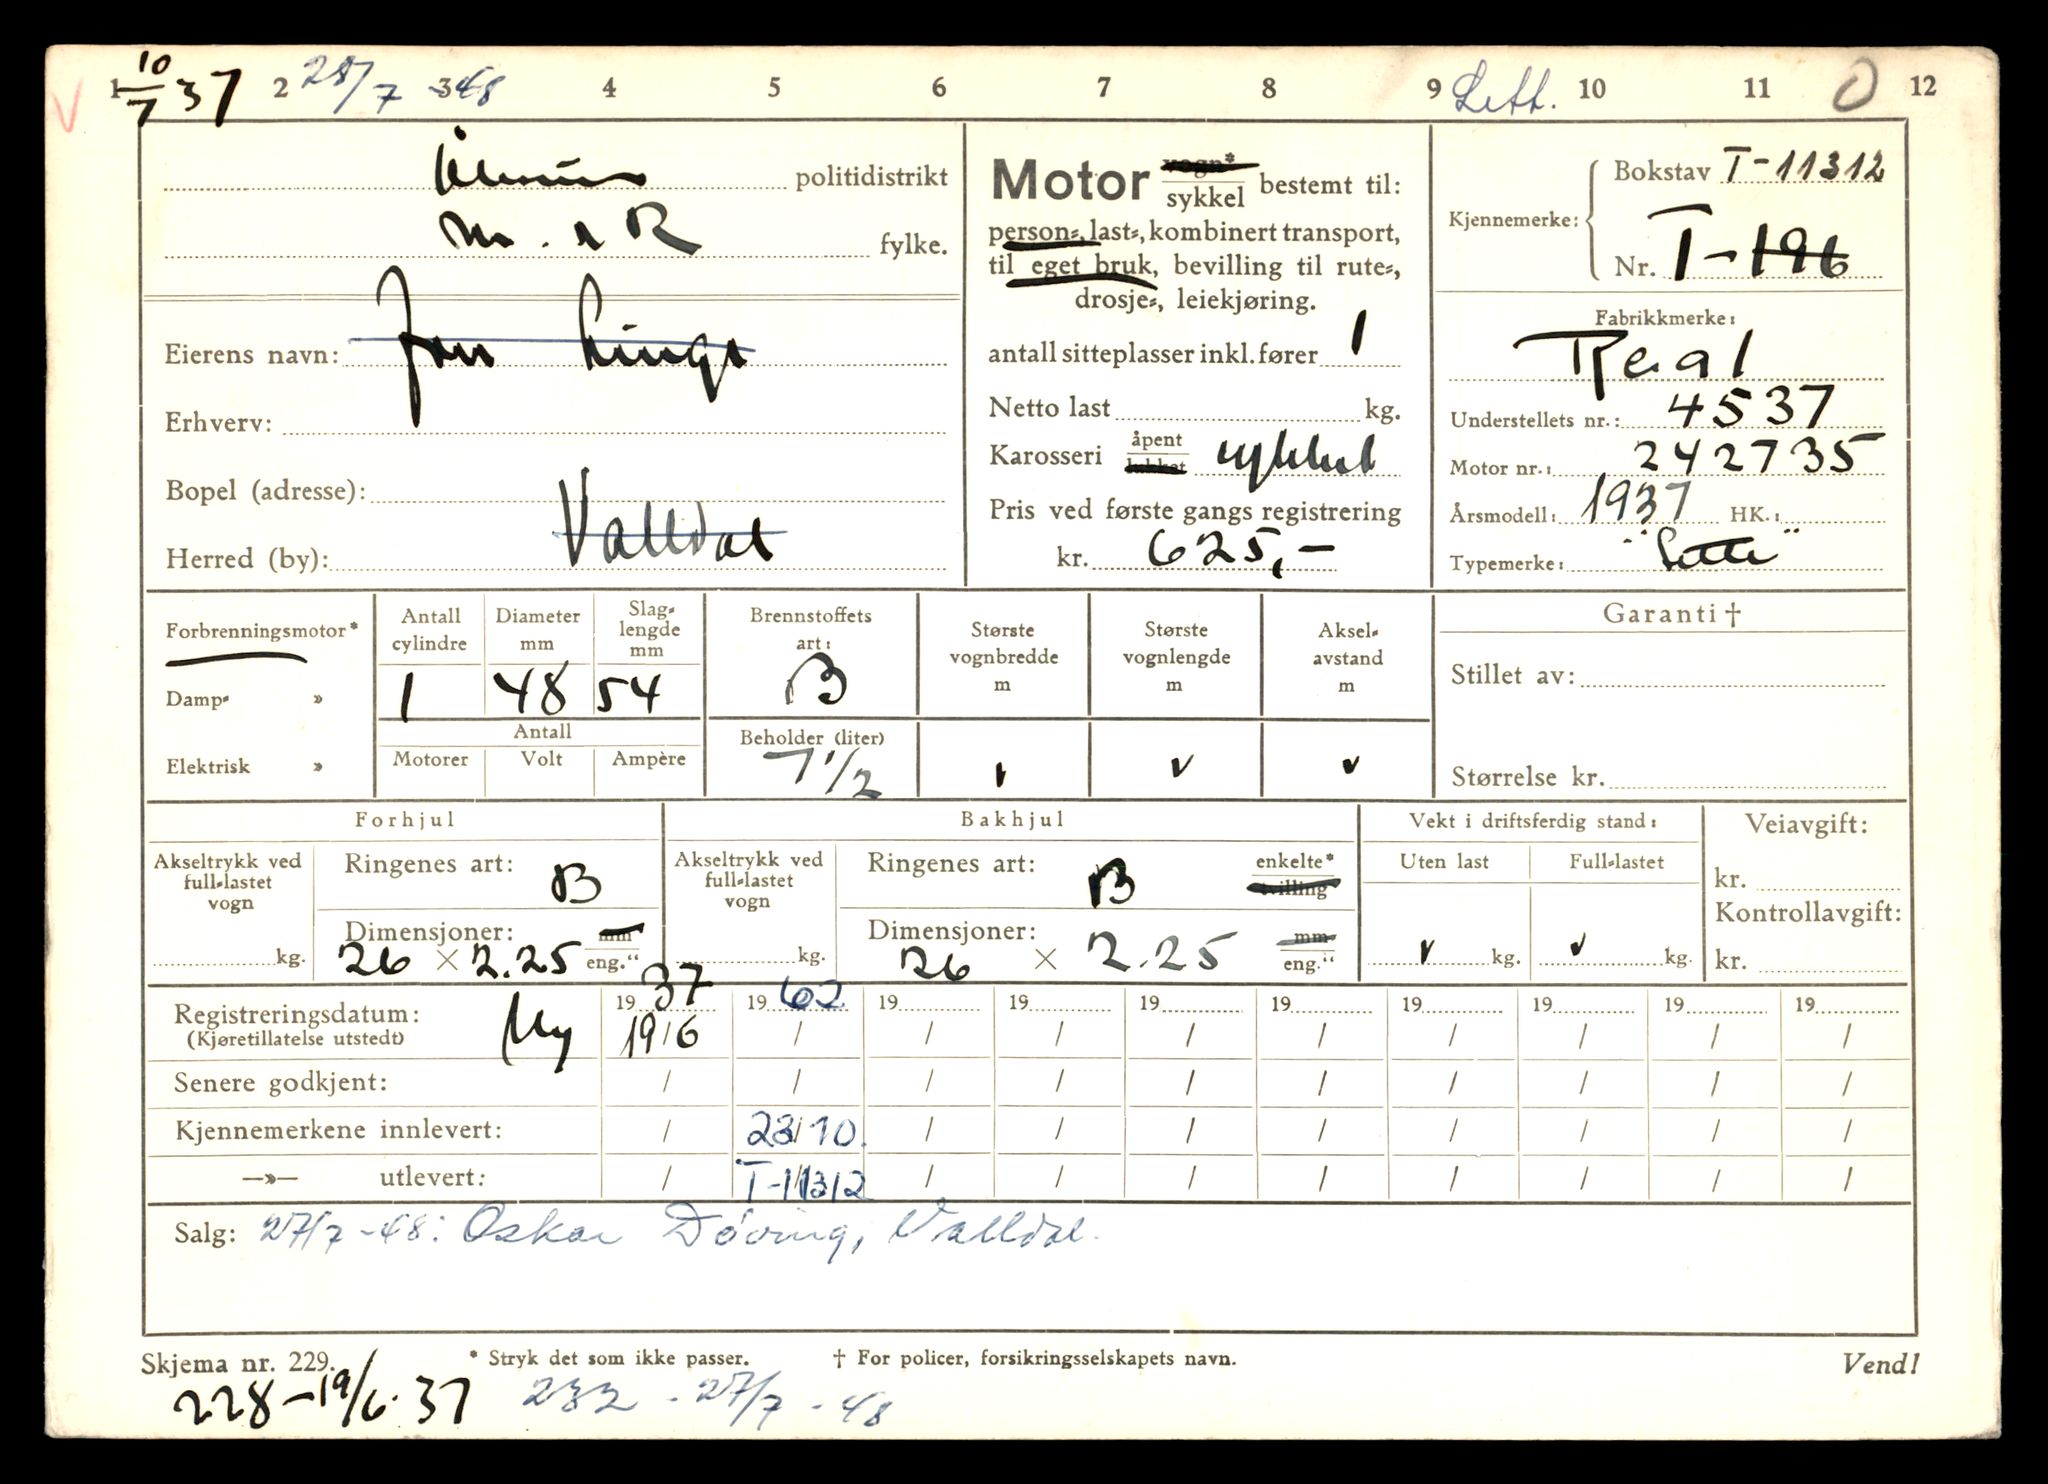 1 10/7 37 2 28/7 - 48 3 4 5 6 7 8 9 Lett. 10 11 0 12
V
politidistrikt
M. o R fylke.
Eierens navn: Jon Linge
Erhverv:
Bopel (adresse):
Herred (by): Valldal
Motor vogn* sykkel bestemt til:
person-, last-, kombinert transport,
til eget bruk, bevilling til rute-,
drosje-, leiekjøring.
antall sitteplasser inkl. fører 1
Netto last kg.
Karosseri åpent lukket sykkel
Pris ved første gangs registrering
kr. 625,-
Kjennemerke: Bokstav T-11312
Nr. T-196
Fabrikkmerke:
Real
Understellets nr.: 4537
Motor nr.: 242735
Årsmodell: 1937 HK.:
Typemerke: "Lette"
Forbrenningsmotor*
Damp- »
Elektrisk »
Antall cylindre 1
Diameter mm 48
Slag-lengde mm 54
Antall
Motorer Volt Ampère
Brennstoffets art: B
Beholder (liter) 7 1/2
Største vognbredde m
Største vognlengde m
Aksel-avstand m
Garanti †
Stillet av:
Størrelse kr.
Forhjul
Akseltrykk ved full-lastet vogn
kg.
Ringenes art: B
Dimensjoner: mm
26 × 2.25 eng."
Bakhjul
Akseltrykk ved full-lastet vogn
kg.
Ringenes art: B enkelte* tvilling
Dimensjoner: mm
26 × 2.25 eng."
Vekt i driftsferdig stand:
Uten last Full-lastet
kg. kg.
Veiavgift:
kr.
Kontrollavgift:
kr.
Registreringsdatum: Ny 19 37 19 62 19 19 19 19 19 19 19 19
(Kjøretillatelse utstedt) 19/6 / / / / / / / / /
Senere godkjent: / / / / / / / / / /
Kjennemerkene innlevert: / 23/10. / / / / / / / /
—»— utlevert: / T-11312 / / / / / / / /
Salg: 27/7 - 48: Oskar Døving, Valldal.
Skjema nr. 229. * Stryk det som ikke passer. † For policer, forsikringsselskapets navn. Vend!
228 - 19/6. 37 232 - 27/7 - 48